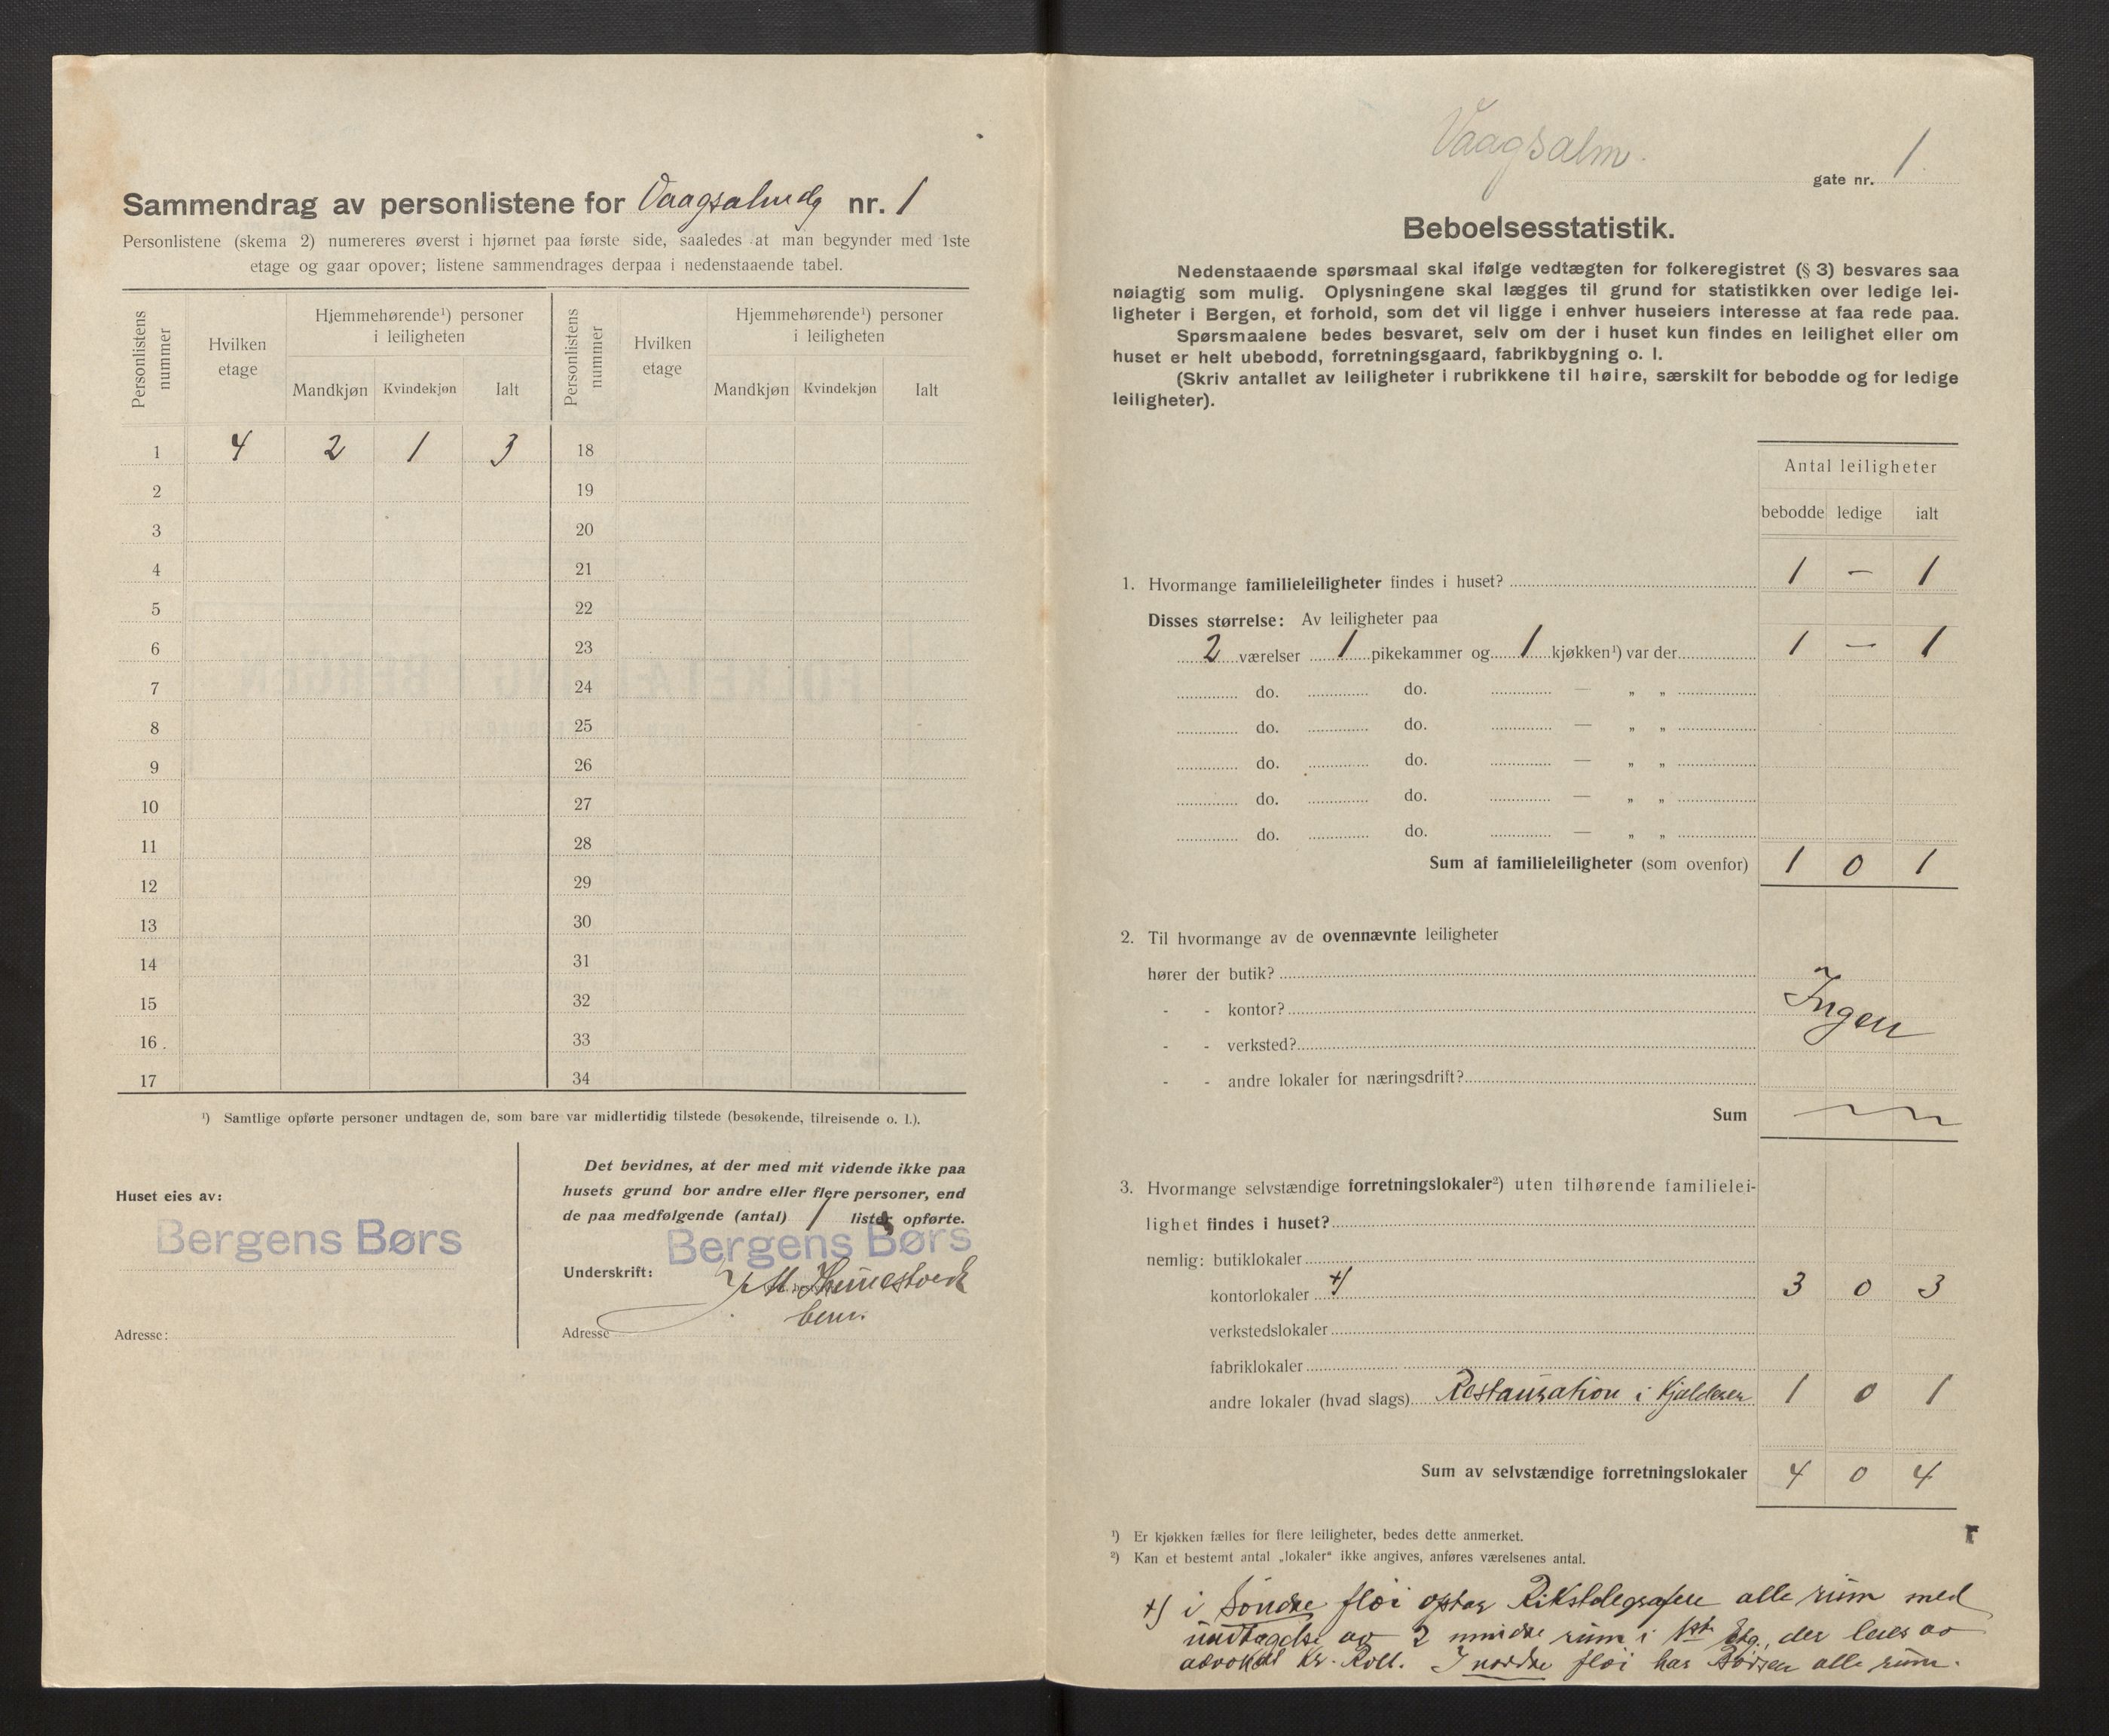 Sammendrag av personlistene for Vaagsalmdg nr. 1
Personlistene (skema 2) numereres øverst i hjørnet paa første side, saaledes at man begynder med 1ste
etage og gaar opover; listene sammendrages derpaa i nedenstaaende tabel.
Personlistens nummer
Hvilken etage
Hjemmehørende¹) personer i leiligheten
Personlistens nummer
Hvilken etage
Hjemmehørende¹) personer i leiligheten
Mandkjøn Kvindekjøn Ialt Mandkjøn Kvindekjøn Ialt
1 4 2 1 3 18
2 19
3 20
4 21
5 22
6 23
7 24
8 25
9 26
10 27
11 28
12 29
13 30
14 31
15 32
16 33
17 34
¹) Samtlige opførte personer undtagen de, som bare var midlertidig tilstede (besøkende, tilreisende o. l.).
Huset eies av:
Bergens Børs
Adresse:
Det bevidnes, at der med mit vidende ikke paa
husets grund bor andre eller flere personer, end
de paa medfølgende (antal) 1 liste opførte.
Bergens Børs
Underskrift:
Adresse
Vaagsalm. gate nr. 1
Beboelsesstatistik.
Nedenstaaende spørsmaal skal ifølge vedtægten for folkeregistret (§ 3) besvares saa
nøiagtig som mulig. Oplysningene skal lægges til grund for statistikken over ledige lei-
ligheter i Bergen, et forhold, som det vil ligge i enhver huseiers interesse at faa rede paa.
Spørsmaalene bedes besvaret, selv om der i huset kun findes en leilighet eller om
huset er helt ubebodd, forretningsgaard, fabrikbygning o. l.
(Skriv antallet av leiligheter i rubrikkene til høire, særskilt for bebodde og for ledige
leiligheter).
Antal leiligheter
bebodde ledige ialt
1. Hvormange familieleiligheter findes i huset? 1 — 1
Disses størrelse: Av leiligheter paa
2 værelser 1 pikekammer og 1 kjøkken¹) var der 1 — 1
do. do. — „ „
do. do. — „ „
do. do. — „ „
do. do. — „ „
do. do. — „ „
Sum af familieleiligheter (som ovenfor) 1 0 1
2. Til hvormange av de ovennævnte leiligheter
hører der butik?
- - kontor? Ingen
- - verksted?
- - andre lokaler for næringsdrift?
Sum
3. Hvormange selvstændige forretningslokaler²) uten tilhørende familielei-
lighet findes i huset?
nemlig: butiklokaler
kontorlokaler +) 3 0 3
verkstedslokaler
fabriklokaler
andre lokaler (hvad slags) Restauration i Kjælderen 1 0 1
Sum av selvstændige forretningslokaler 4 0 4
¹) Er kjøkken fælles for flere leiligheter, bedes dette anmerket.
²) Kan et bestemt antal „lokaler“ ikke angives, anføres værelsenes antal.
+) i Søndre fløi optar Rikstelegrafen alle rum med
undtagelse av 2 mindre rum i 1ste Etg., der leies av
advokat Kr. Roll. I nordre fløi har Børsen alle rum.